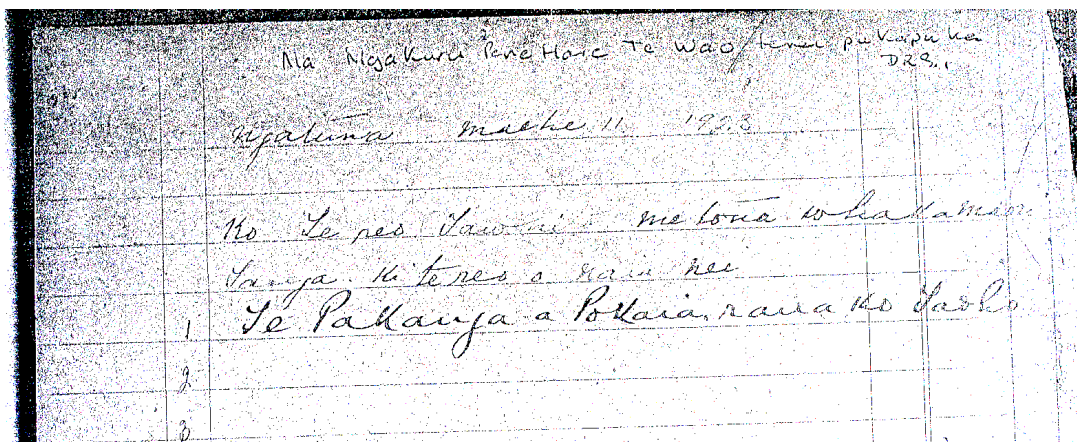 Na Ngakuru Pene Hare Te Wao tenei pukapuka
Ngatuna maehe 11 1923
Ko Te reo Tawhi me tona whakamaori
Tanga ki te reo o naia nei
1 Te Pakanga a Pokaia, raua ko Taoho
2
3